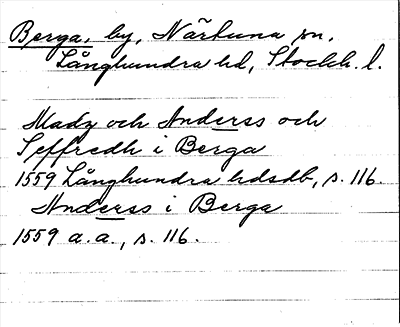 Berga, by, Närtuna sn,
Långhundra hd, Stockh. l.
Mady och Anderss och
Seffredh i Berga
1559 Långhundra hdsdb, s. 116.
Anderss i Berga
1559 a.a., s. 116.